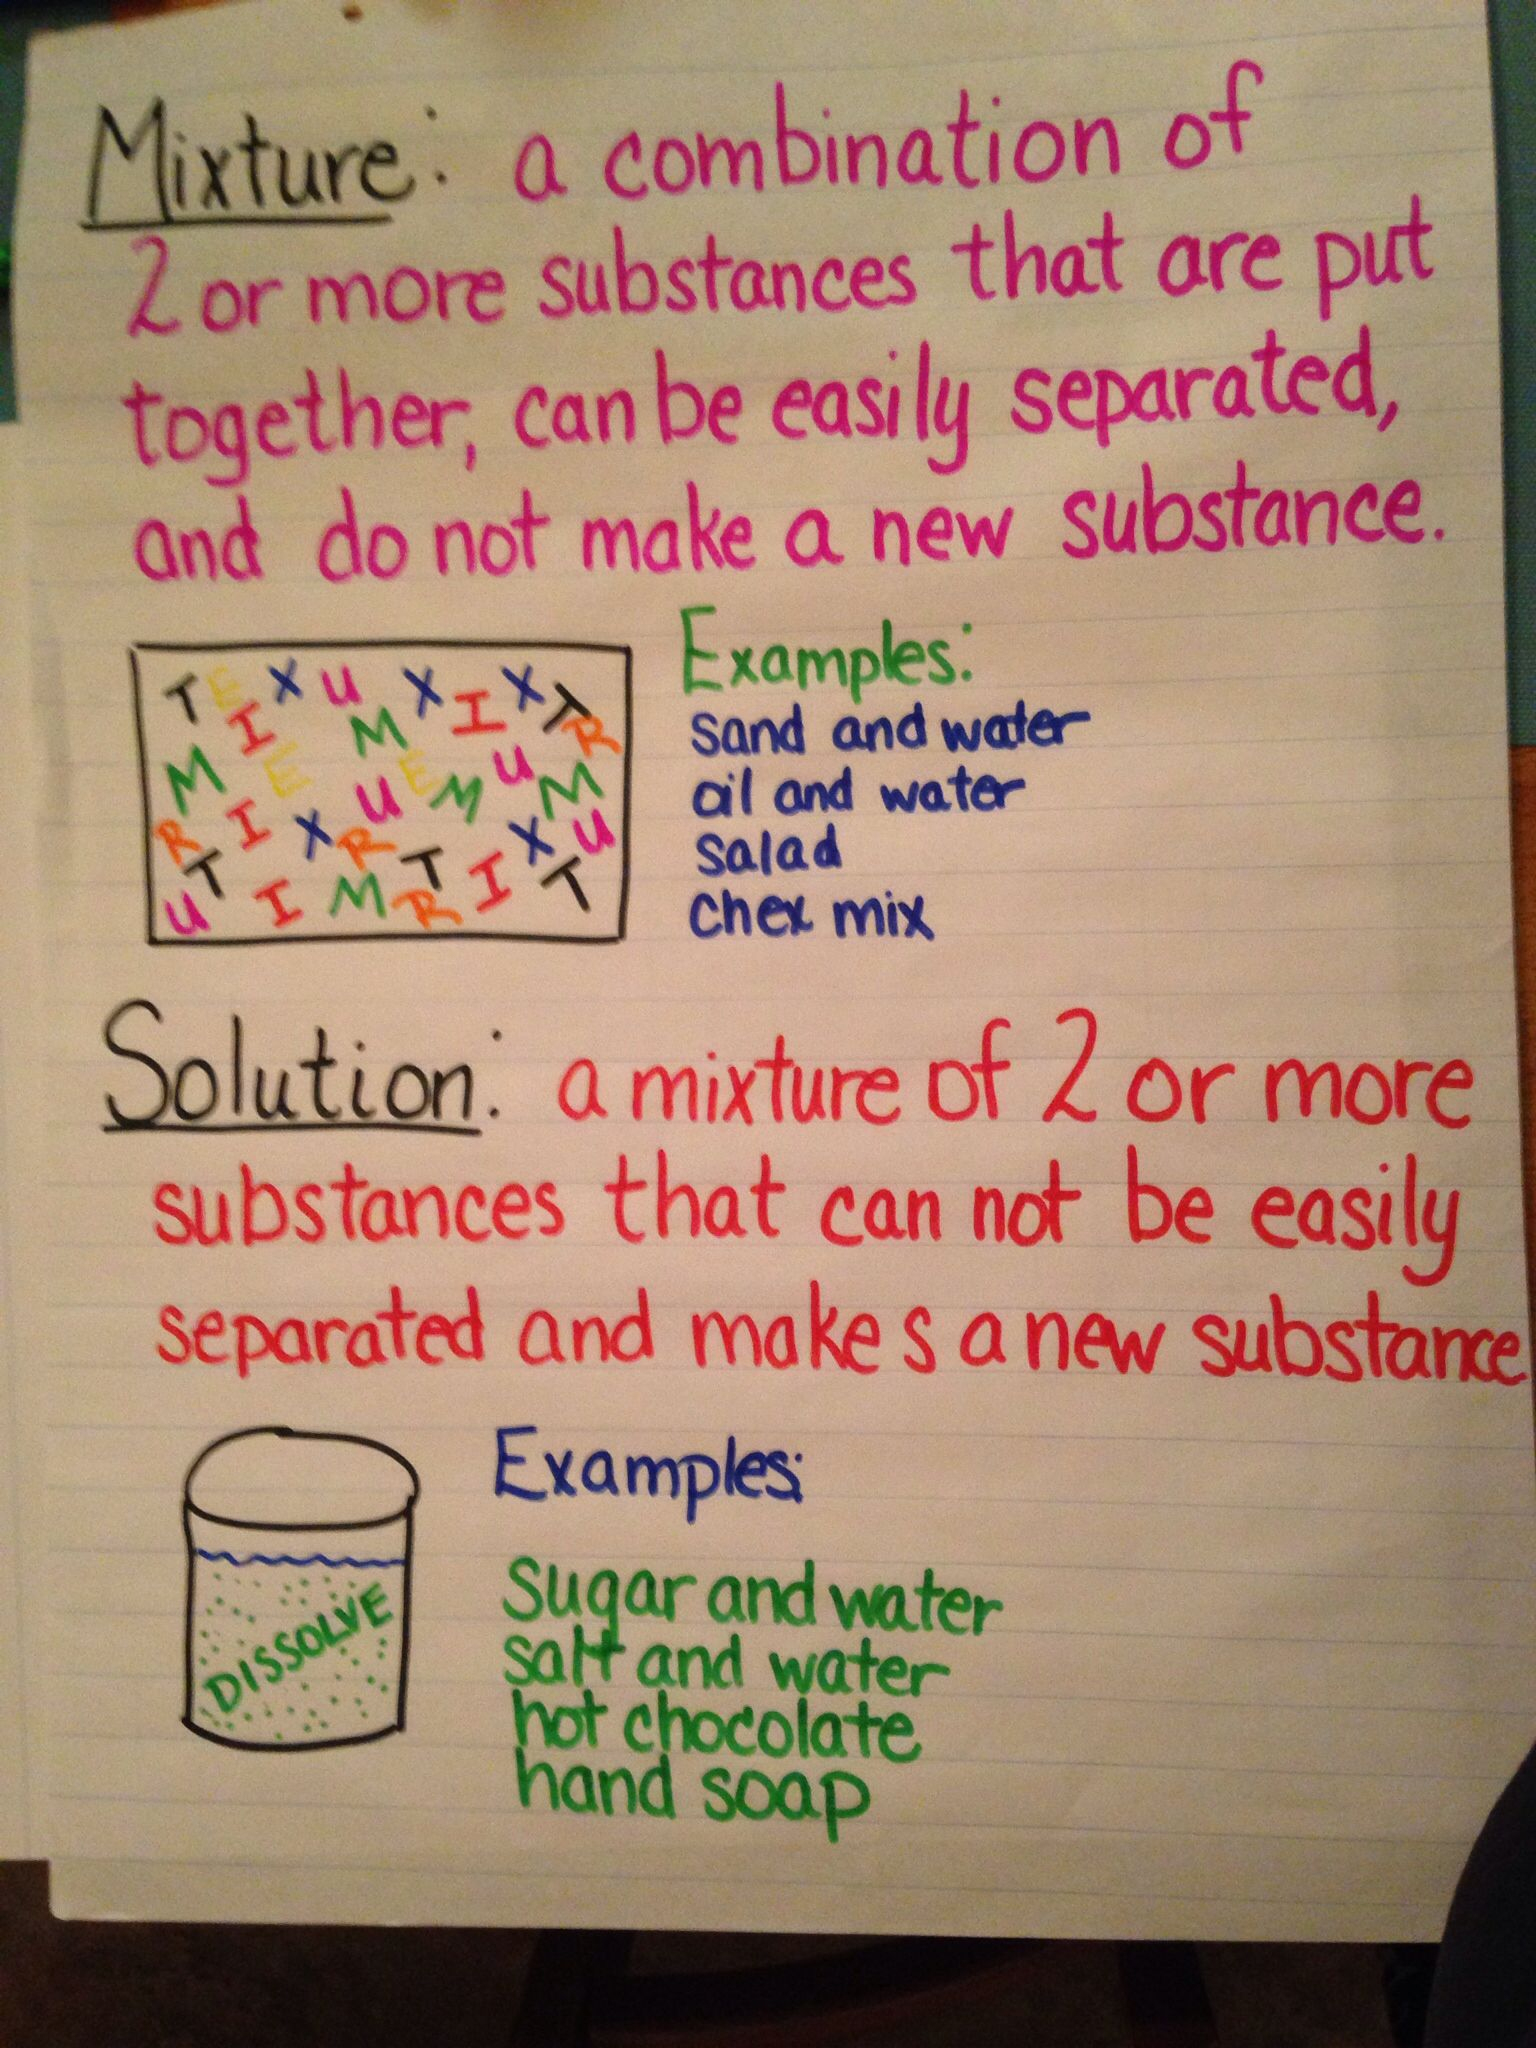 Mixture: a combination of
2 or more substances that are put
together, can be easily separated,
and do not make a new substance.
T E X U X I X T
I M R
M E U E M U M
R I X R X U
T T I T
U I M R
Examples:
sand and water
oil and water
salad
chex mix
Solution: a mixture of 2 or more
substances that can not be easily
separated and makes a new substance
DISSOLVE
Examples:
Sugar and water
salt and water
hot chocolate
hand soap